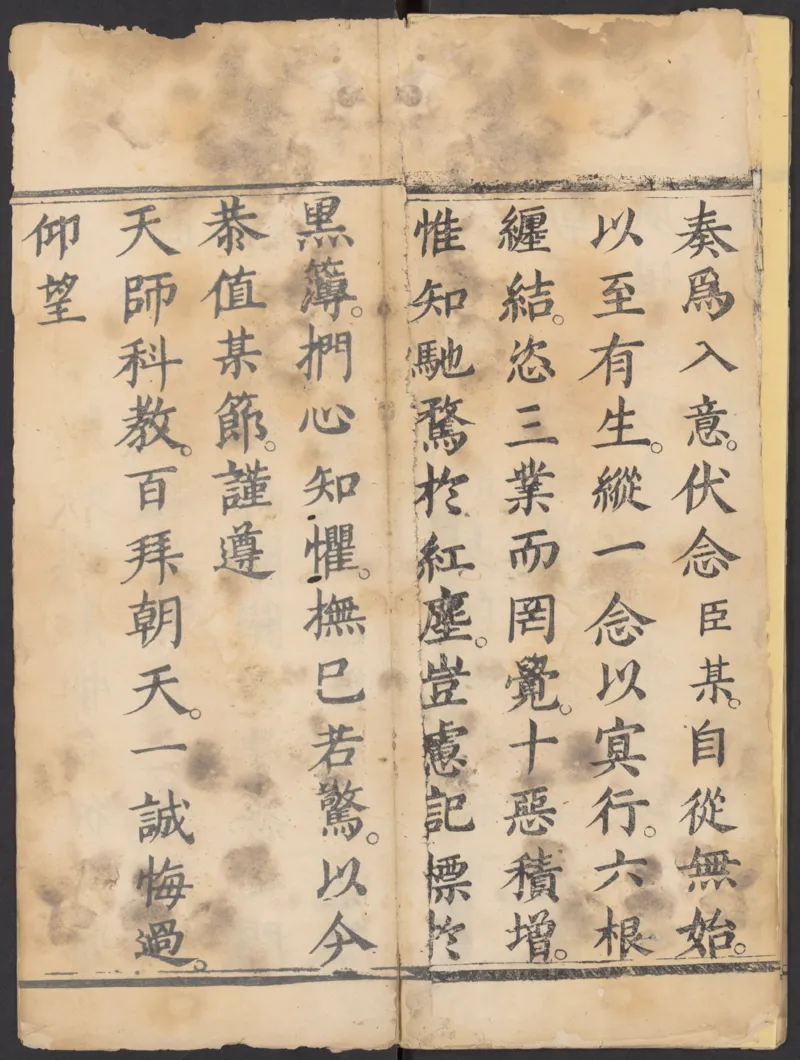 奏爲入意。伏念臣某。自從無始。
以至有生。縱一念以㝠行。六根
纏結。恣三業而罔覺。十惡積增。
惟知馳騖於紅塵。豈慮記標於
黒簿。捫心知懼。撫巳若驚。以今
恭值某節。謹遵
天師科教。百拜朝天。一誠悔過。
仰望